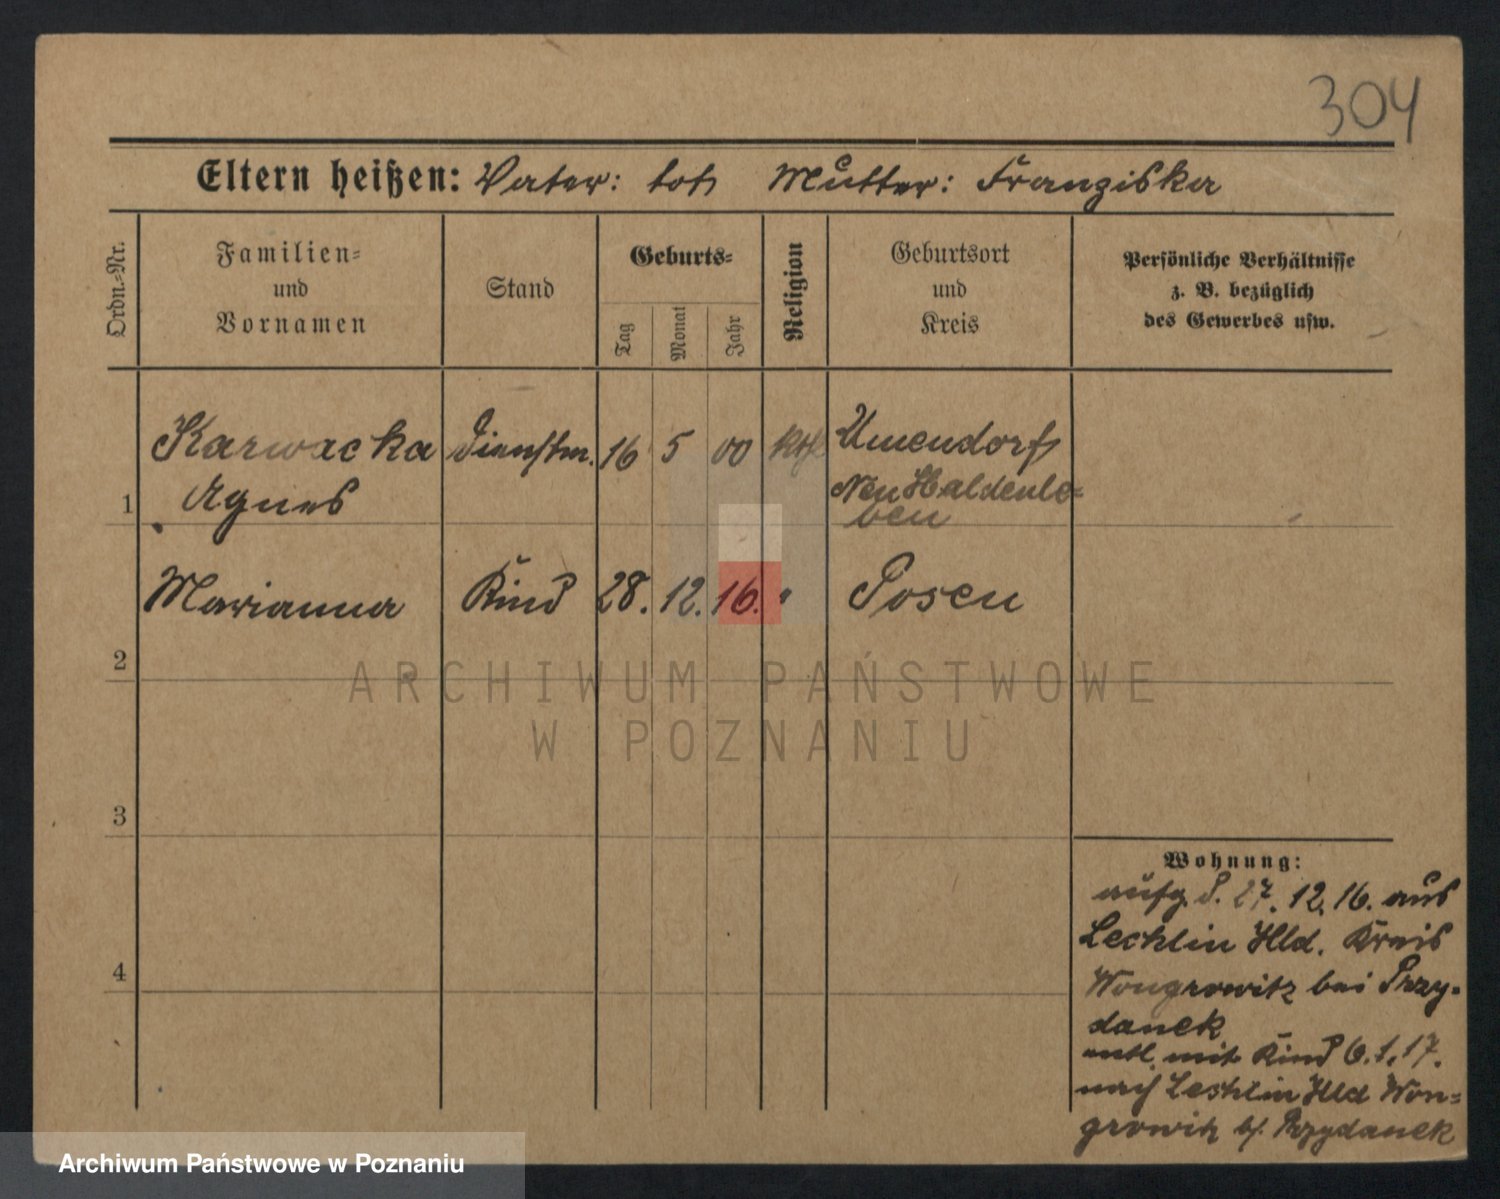 304
Eltern heißen: Vater: tot Mutter: Franziska
Ordn.-Nr.
Familien-
und
Vornamen
Stand
Geburts-
Tag
Monat
Jahr
Religion
Geburtsort
und
Kreis
Persönliche Verhältnisse
z. B. bezüglich
des Gewerbes usw.
1
Karwacka
Agnes
Dienstm.
16 5 00
kth
Umendorf
Neu Haldensle=
ben
2
Marianna
Kind
28. 12. 16. "
Posen
3
4
Wohnung:
aufg. d. 27. 12. 16. aus
Lechlin Hld. Kreis
Wongrowitz bei Przy-
danek
entl. mit Kind 6. 1. 17.
nach Lechlin Hld Won=
growitz b/. Przydanek
ARCHIWUM PAŃSTWOWE
W POZNANIU
Archiwum Państwowe w Poznaniu